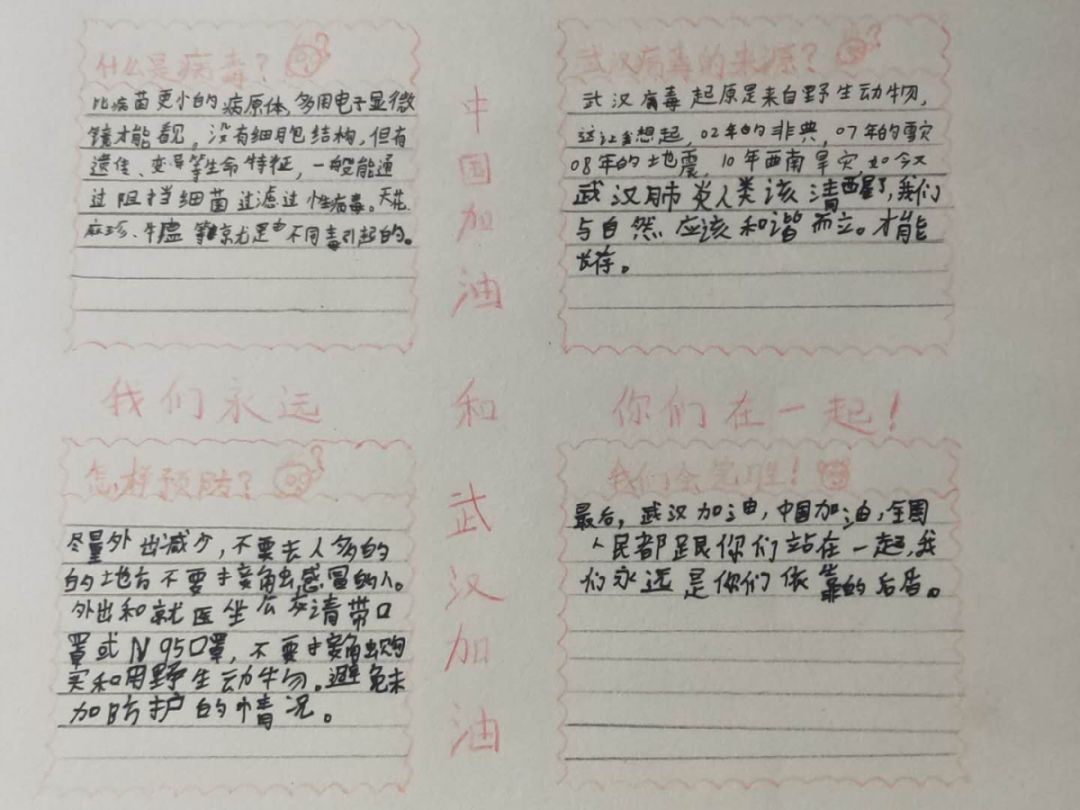 什么是病毒?
比病菌更小的病原体,多用电子显微
镜才能看见,没有细胞结构,但有
遗传、变异等生命特征,一般能通
过阻挡细菌过滤过性病毒。天花、
麻疹、牛虚等就是由不同毒引起的。
武汉病毒的来源?
武汉病毒起原是来自野生动物,
这让我想起,02年的非典,07年的雪灾
08年的地震,10年西南旱灾,如今又
武汉肺炎人类该清醒了,我们
与自然应该和谐而立。才能
长存。
中国加油和武汉加油
我们永远
你们在一起!
怎样预防?
尽量外出减少,不要去人多的
的地方不要接触感冒的人。
外出和就医坐公交请带口
罩或N95口罩,不要接触购
买和用野生动物。避免未
加防护的情况。
我们会完胜!
最后,武汉加油,中国加油,全国
人民都跟你们站在一起,我
们永远是你们依靠的后盾。